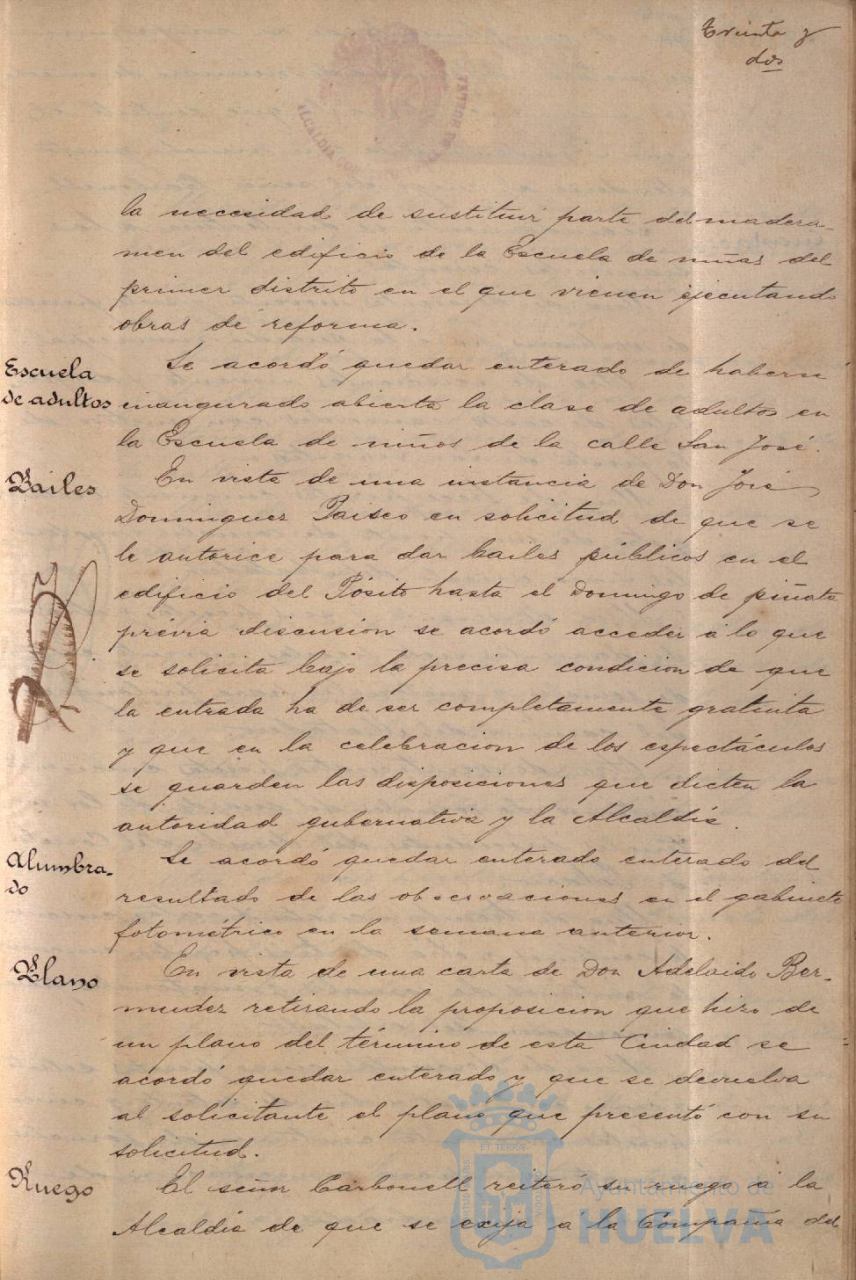 Treinta y
dos
la necesidad de sustituir parte del madera-
men del edificio de la Escuela de niñas del
primer distrito en el que vienen ejecutando
obras de reforma.
Escuela
de adultos
Se acordó quedar enterado de haberse
inaugurado abierta la clase de adultos en
la Escuela de niños de la calle San José.
Bailes
En vista de una instancia de Don José
Dominguez en solicitud de que se
le autorice para dar bailes públicos en el
edificio del Pósito hasta el Domingo de piñata
prévia discusión se acordó acceder á lo que
se solicita bajo la precisa condicion de que
la entrada ha de ser completamente gratuita
y que en la celebracion de los espectáculos
se guarden las disposiciones que dicten la
autoridad gubernativa y la Alcaldía.
Alumbra-
do
Se acordó quedar enterado enterado del
resultado de las observaciones en el gabinete
fotométrico en la semana anterior.
Plano
En vista de una carta de Don Adelaido Ber-
mudez retirando la proposicion que hizo de
un plano del término de esta Ciudad se
acordó quedar enterado y que se devuelva
al solicitante el plano que presentó con su
solicitud.
Ruego
El señor Carbonell reiteró su ruego á la
Alcaldía de que se exija a la Compañia del
Ayuntamiento de
HUELVA